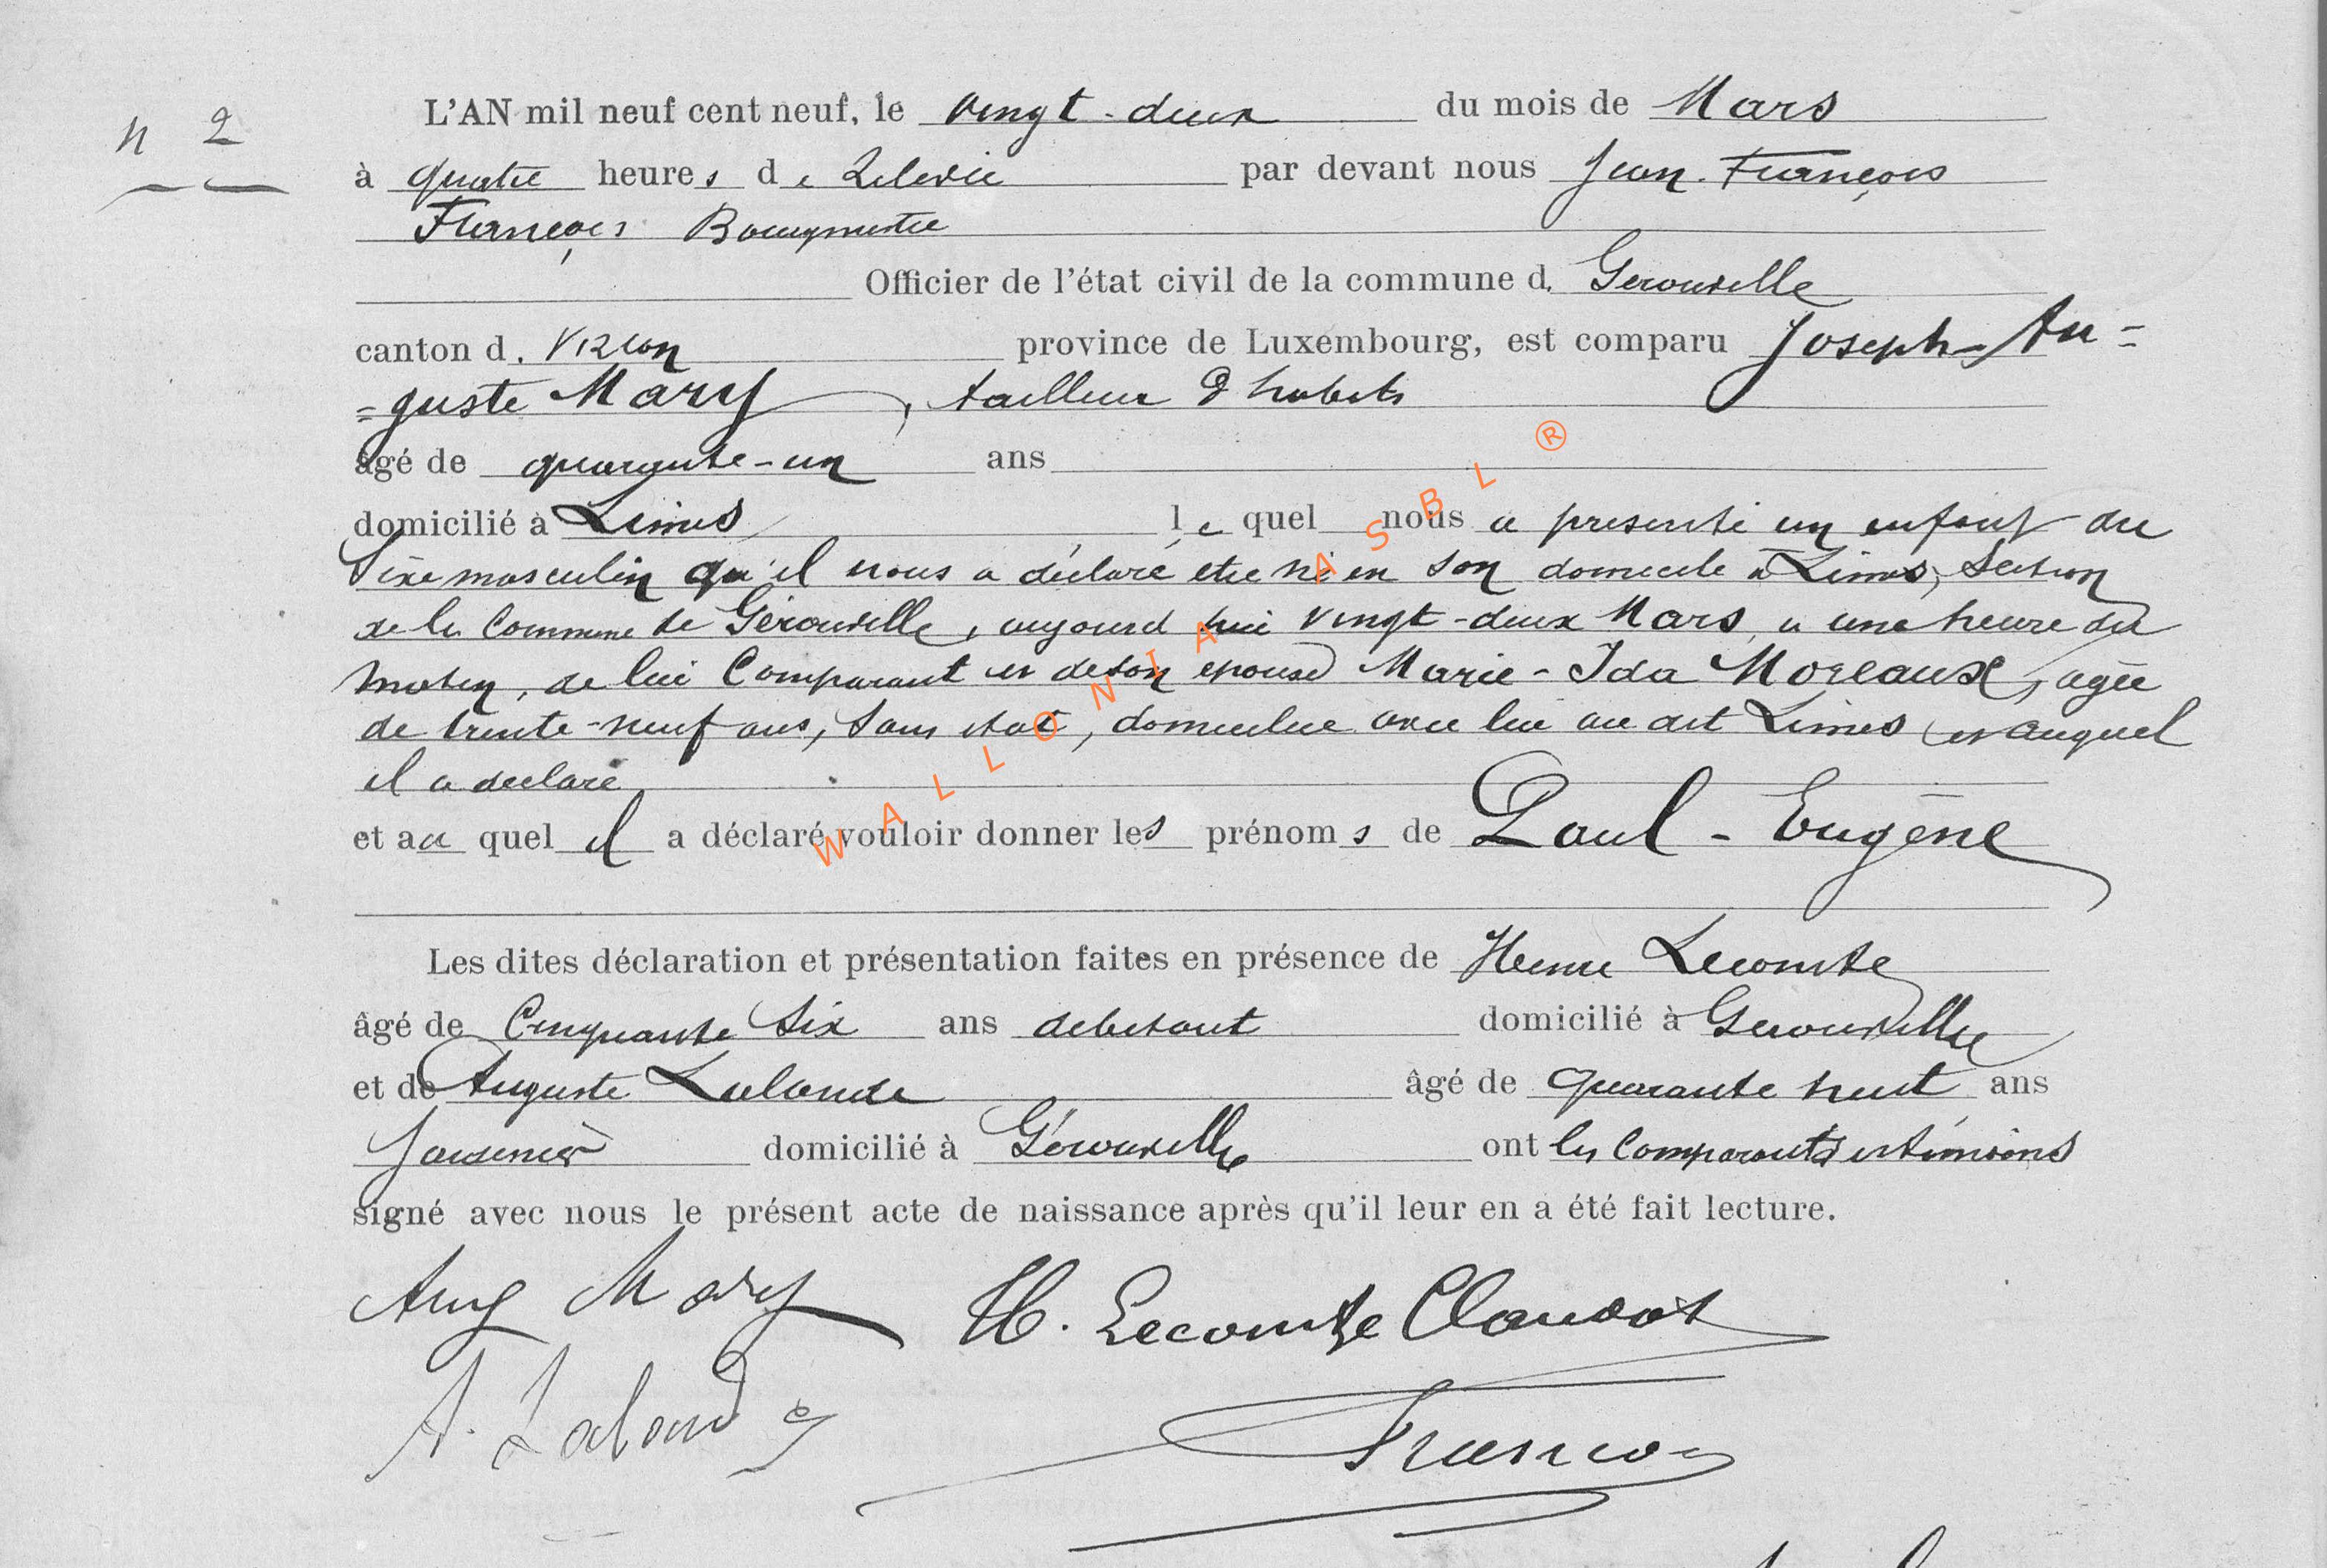 n 2
L'AN mil neuf cent neuf, le vingt-deux du mois de Mars
à quatre heures de Relevée par devant nous Jean-François
François Bourgmestre
Officier de l'état civil de la commune d. Gérouville
canton d. Virton province de Luxembourg, est comparu Joseph-Au=
=guste Mary, tailleur d'habits
âgé de quarante-un ans
domicilié à Limes le quel nous a présenté un enfant du
Sexe masculin qu'il nous a déclaré être né en son domicile à Limes, Section
de la Commune de Gérouville, aujourd'hui vingt-deux Mars, à une heure du
matin, de lui Comparant et de son épouse Marie-Ida Moreaux, agée
de trente-neuf ans, sans état, domiciliée avec lui au dit Limes et auquel
il a déclaré
et au quel il a déclaré vouloir donner les prénoms de Paul-Eugène
Les dites déclaration et présentation faites en présence de Henri Lecomte
âgé de Cinquante Six ans débitant domicilié à Gérouville
et de Auguste Lalande âgé de quarante huit ans
Jardinier domicilié à Gérouville ont les Comparants et témoins
signé avec nous le présent acte de naissance après qu'il leur en a été fait lecture.
Aug Mary H. Lecomte Claudot
A. Lalande
François
WALLONIA ASBL ®